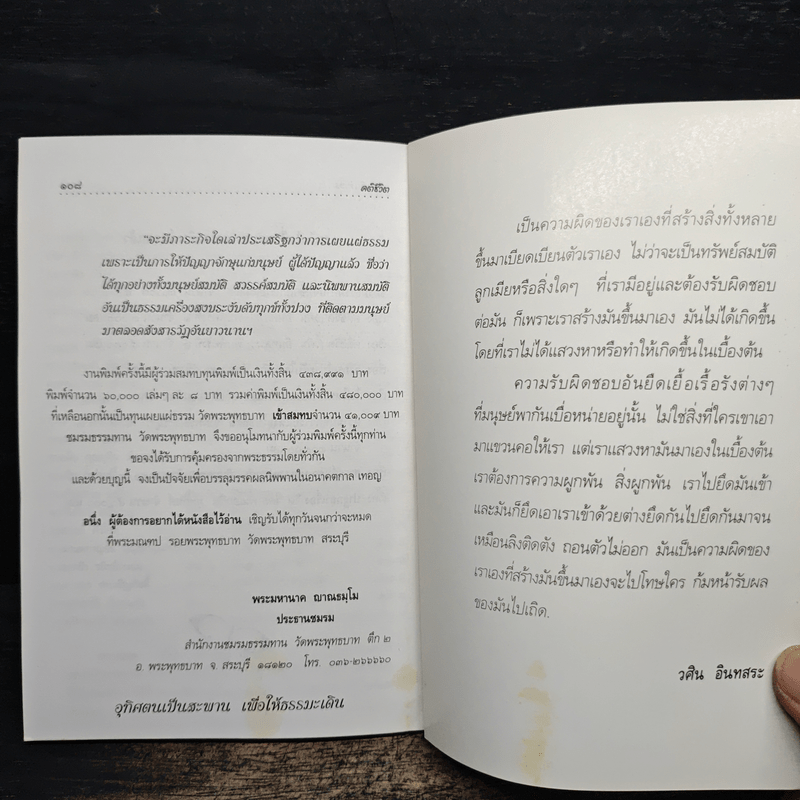 ๑๐๘
คติชีวิต
"จะมีภาระกิจใดเล่าประเสริฐกว่าการเผยแผ่ธรรม
เพราะเป็นการให้ปัญญาจักษุแก่มนุษย์ ผู้ได้ปัญญาแล้ว ชื่อว่า
ได้ทุกอย่างทั้งมนุษย์สมบัติ สวรรค์สมบัติ และนิพพานสมบัติ
อันเป็นธรรมเครื่องสงบระงับดับทุกข์ทั้งปวง ที่ติดตามมนุษย์
มาตลอดสังสารวัฏอันยาวนานฯ
งานพิมพ์ครั้งนี้มีผู้ร่วมสมทบทุนพิมพ์เป็นเงินทั้งสิ้น ๔๓๘,๙๙๑ บาท
พิมพ์จำนวน ๖๐,๐๐๐ เล่มๆ ละ ๘ บาท รวมค่าพิมพ์เป็นเงินทั้งสิ้น ๔๘๐,๐๐๐ บาท
ที่เหลือนอกนั้นเป็นทุนเผยแผ่ธรรม วัดพระพุทธบาท เข้าสมทบจำนวน ๔๑,๐๐๙ บาท
ชมรมธรรมทาน วัดพระพุทธบาท จึงขออนุโมทนากับผู้ร่วมพิมพ์ครั้งนี้ทุกท่าน
ขอจงได้รับการคุ้มครองจากพระธรรมโดยทั่วกัน
และด้วยบุญนี้ จงเป็นปัจจัยเพื่อบรรลุมรรคผลนิพพานในอนาคตกาล เทอญ
อนึ่ง ผู้ต้องการอยากได้หนังสือไว้อ่าน เชิญรับได้ทุกวันจนกว่าจะหมด
ที่พระมณฑป รอยพระพุทธบาท วัดพระพุทธบาท สระบุรี
พระมหานาค ญาณธมฺโม
ประธานชมรม
สำนักงานชมรมธรรมทาน วัดพระพุทธบาท ตึก ๒
อ. พระพุทธบาท จ. สระบุรี ๑๘๑๒๐ โทร. ๐๓๖-๒๖๖๖๖๐
อุทิศตนเป็นสะพาน เพื่อให้ธรรมะเดิน
เป็นความผิดของเราเองที่สร้างสิ่งทั้งหลาย
ขึ้นมาเบียดเบียนตัวเราเอง ไม่ว่าจะเป็นทรัพย์สมบัติ
ลูกเมียหรือสิ่งใดๆ ที่เรามีอยู่และต้องรับผิดชอบ
ต่อมัน ก็เพราะเราสร้างมันขึ้นมาเอง มันไม่ได้เกิดขึ้น
โดยที่เราไม่ได้แสวงหาหรือทำให้เกิดขึ้นในเบื้องต้น
ความรับผิดชอบอันยืดเยื้อเรื้อรังต่างๆ
ที่มนุษย์พากันเบื่อหน่ายอยู่นั้น ไม่ใช่สิ่งที่ใครเขาเอา
มาแขวนคอให้เรา แต่เราแสวงหามันมาเองในเบื้องต้น
เราต้องการความผูกพัน สิ่งผูกพัน เราไปยึดมันเข้า
และมันก็ยึดเอาเราเข้าด้วยต่างยึดกันไปยึดกันมาจน
เหมือนลิงติดตัง ถอนตัวไม่ออก มันเป็นความผิดของ
เราเองที่สร้างมันขึ้นมาเองจะไปโทษใคร ก้มหน้ารับผล
ของมันไปเถิด.
วศิน อินทสระ